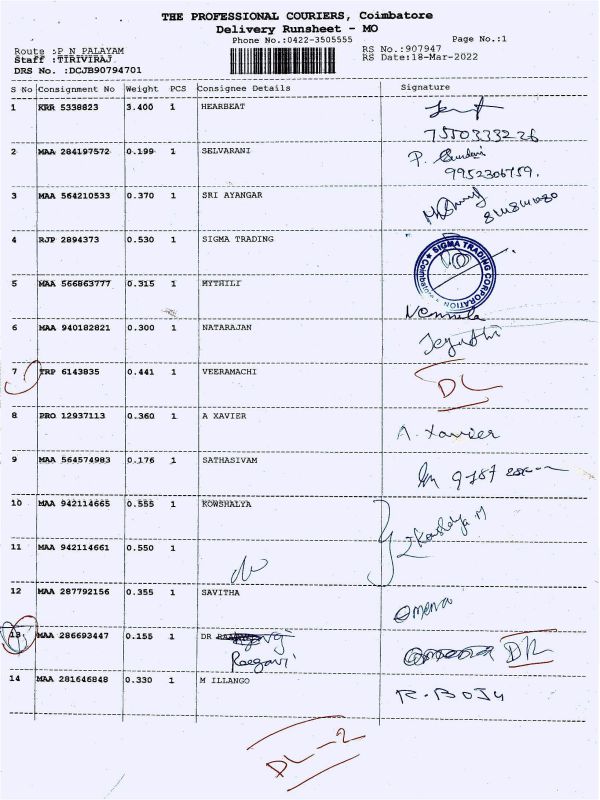 THE PROFESSIONAL COURIERS, Coimbatore
Delivery Runsheet - MO
Phone No.:0422-3505555
Page No.:1
Route :P N PALAYAM
RS No.:907947
Staff :TIRIVIRAJ
RS Date:18-Mar-2022
DRS No. :DCJB90794701
S No Consignment No Weight PCS Consignee Details Signature
1 KRR 5338823 3.400 1 HEARBEAT
7550333226
2 MAA 284197572 0.199 1 SELVARANI P. Sundari
9952306759.
3 MAA 564210533 0.370 1 SRI AYANGAR
4 RJP 2894373 0.530 1 SIGMA TRADING
SIGMA TRADING CORPORATION Coimbatore
5 MAA 566863777 0.315 1 MYTHILI
6 MAA 940182821 0.300 1 NATARAJAN
7 TRP 6143835 0.441 1 VEERAMACHI DL
8 PRO 12937113 0.360 1 A XAVIER A. Xavier
9 MAA 564574983 0.176 1 SATHASIVAM
10 MAA 942114665 0.555 1 KOWSHALYA
11 MAA 942114661 0.550 1
12 MAA 287792156 0.355 1 SAVITHA
13 MAA 286693447 0.155 1 DR
14 MAA 281646848 0.330 1 M ILLANGO R. BOJU
DL-2